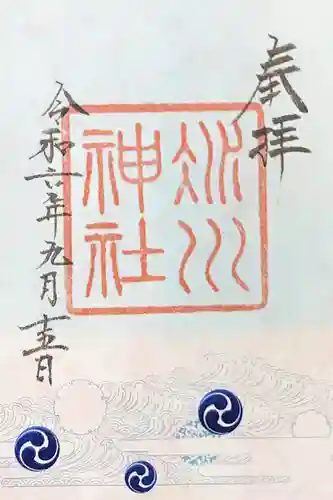 奉拝
氷川
神社
令和六年九月十五日